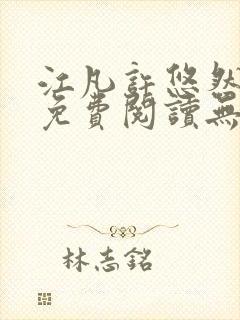 江凡許悠然
免費閱讀無
林志銘